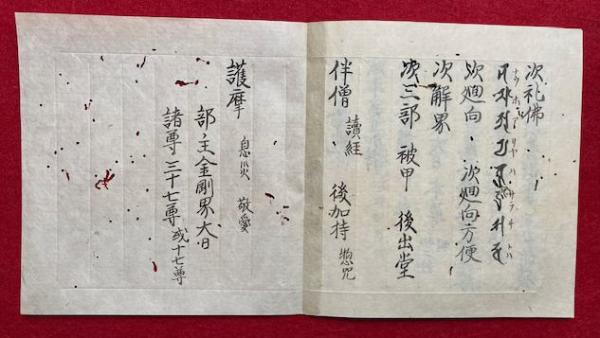 次礼佛
次廻向 次廻向方便
次解界
次三部 被甲 後出堂
伴僧 讀経 後加持 惣咒
護摩 息災 敬愛
部主金剛界大日
諸尊 三十七尊或十七尊